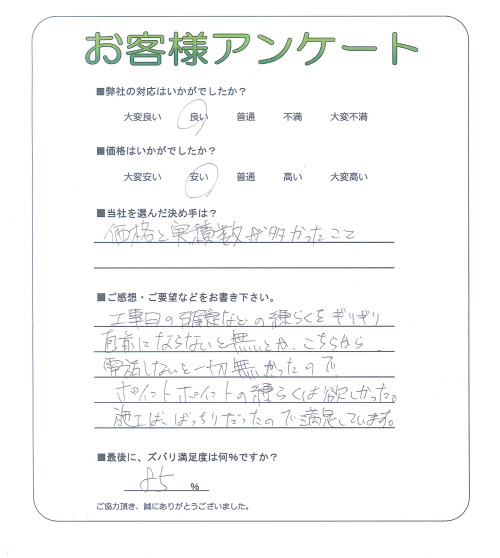 お客様アンケート
■弊社の対応はいかがでしたか？
大変良い 良い 普通 不満 大変不満
■価格はいかがでしたか？
大変安い 安い 普通 高い 大変高い
■当社を選んだ決め手は？
価格と実積数が多かったこと
■ご感想・ご要望などをお書き下さい。
工事日の確定などの連らくをギリギリ
直前にならないと無いとか、こちらから
電話しないと一切無かったので
ポイントポイントの連らくは欲しかった。
施工は、ばっちりだったので満足しています。
■最後に、ズバリ満足度は何％ですか？
85 ％
ご協力頂き、誠にありがとうございました。